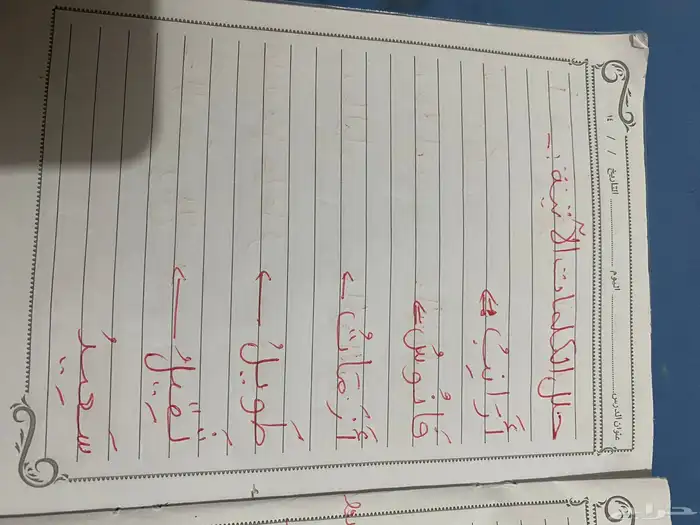 عنوان الدرس ............ اليوم ............ التاريخ / / ١٤
حلل الكلمات الآتية :-
أَرَانِبُ ←
فَانُوسُ ←
أَزْمَانُ ←
طَوِيلُ ←
ثَقِيلُ ←
سَعِيدُ
حراج